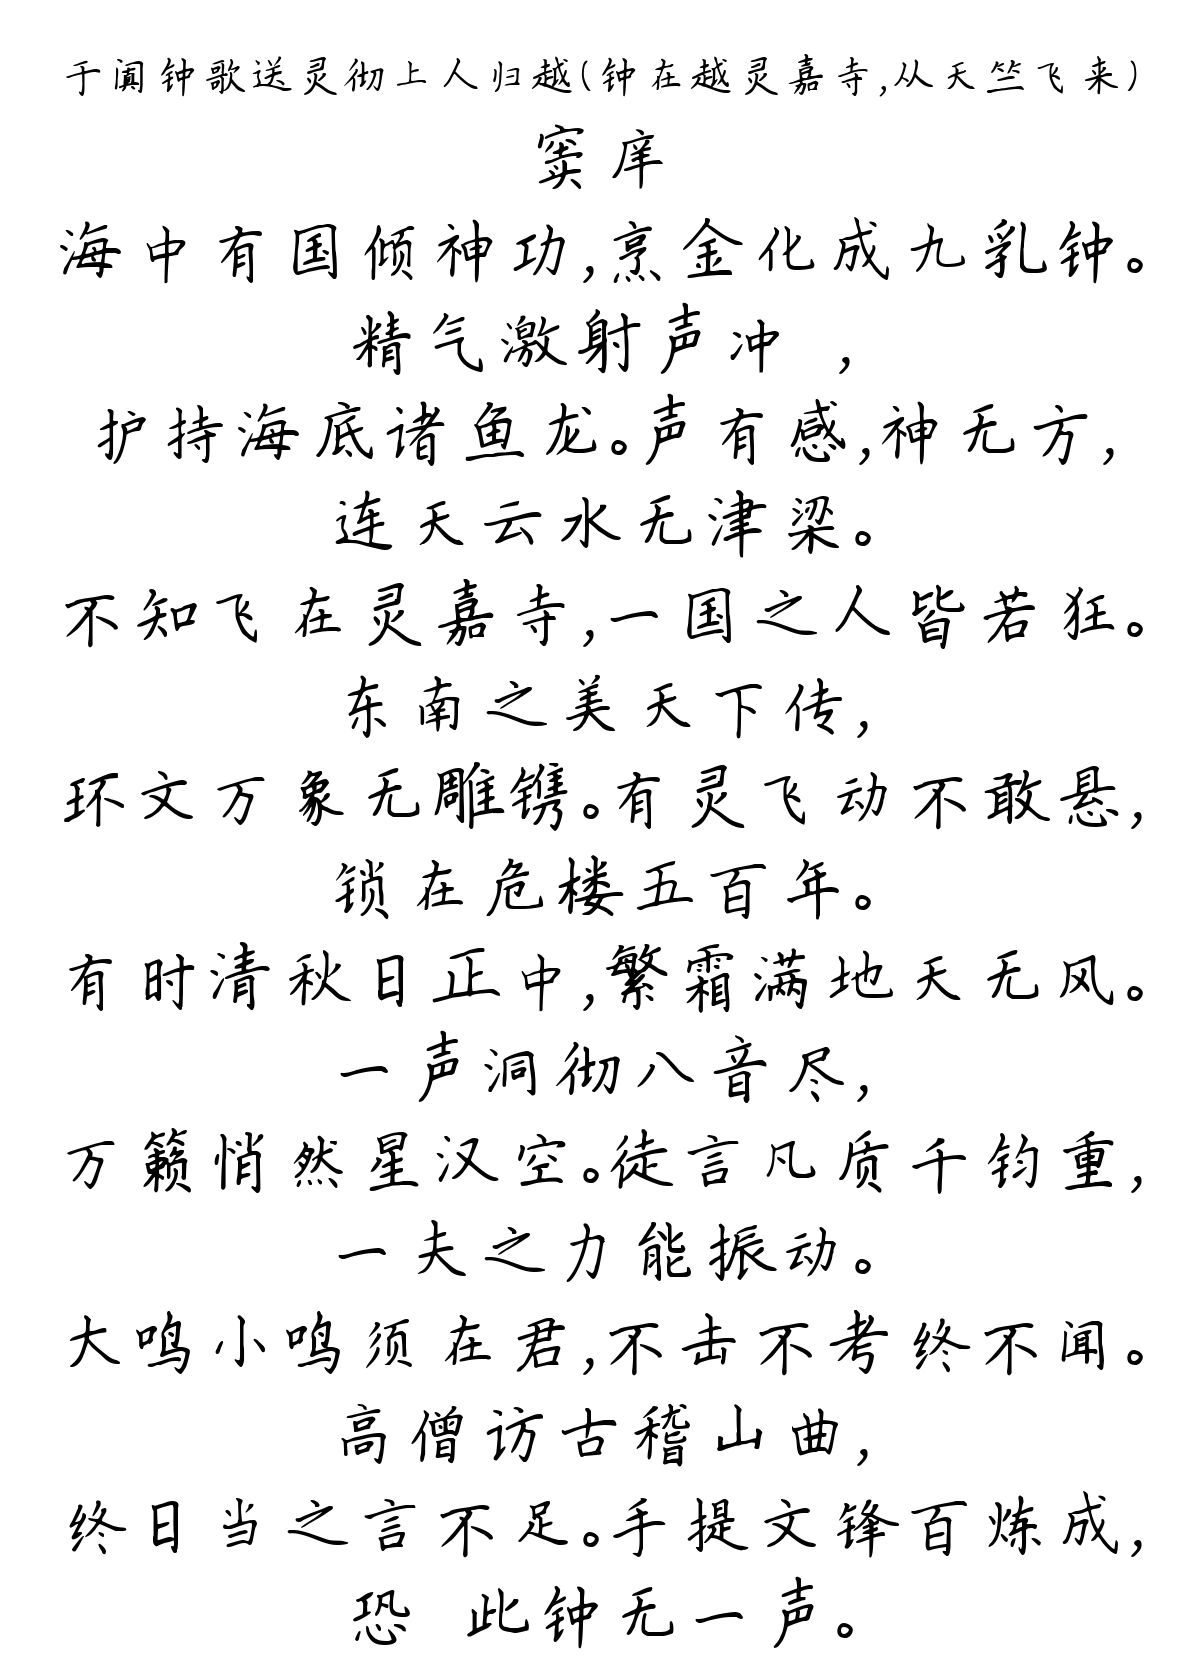 于阗钟歌送灵彻上人归越(钟在越灵嘉寺,从天竺飞来)
窦庠
海中有国倾神功,烹金化成九乳钟。
精气激射声冲 ,
护持海底诸鱼龙。声有感,神无方,
连天云水无津梁。
不知飞在灵嘉寺,一国之人皆若狂。
东南之美天下传,
环文万象无雕镌。有灵飞动不敢悬,
锁在危楼五百年。
有时清秋日正中,繁霜满地天无风。
一声洞彻八音尽,
万籁悄然星汉空。徒言凡质千钧重,
一夫之力能振动。
大鸣小鸣须在君,不击不考终不闻。
高僧访古稽山曲,
终日当之言不足。手提文锋百炼成,
恐 此钟无一声。